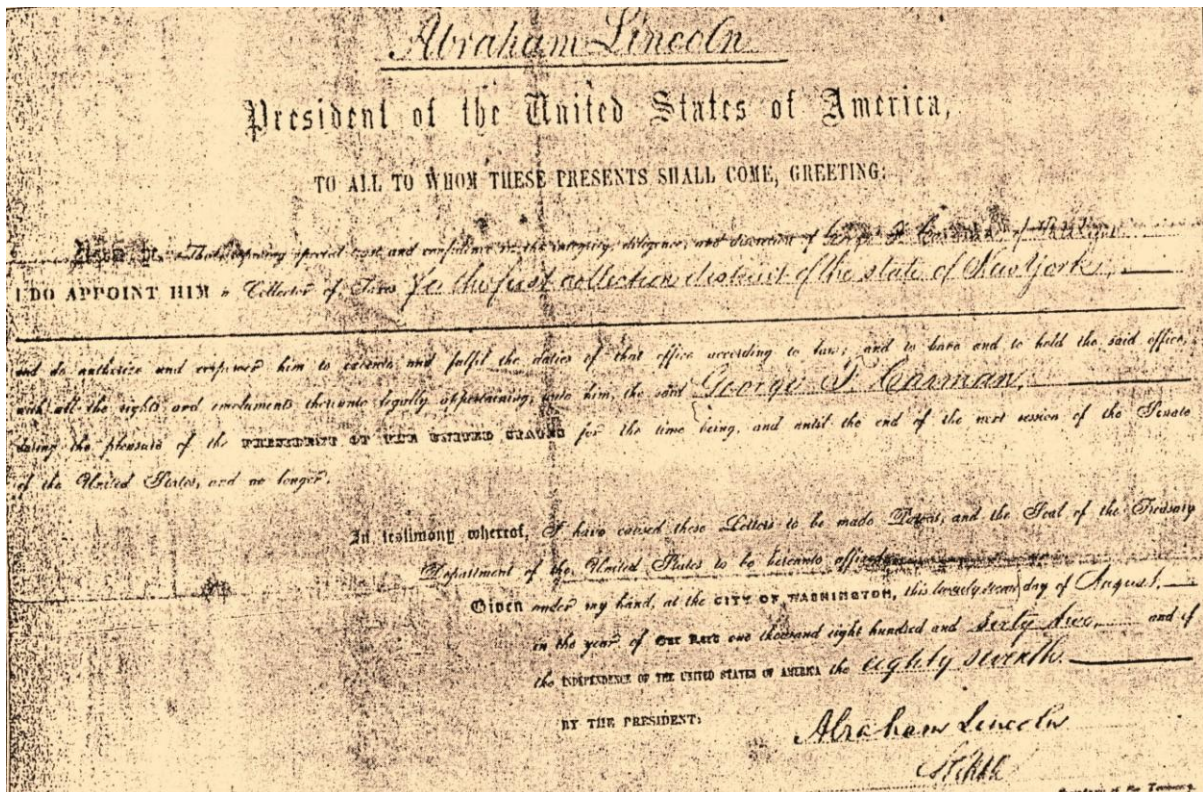 Abraham Lincoln
President of the United States of America,
TO ALL TO WHOM THESE PRESENTS SHALL COME, GREETING:
That reposing special trust and confidence in the integrity, diligence, and discretion of George
I DO APPOINT HIM Collector of Taxes for the first collection district of the state of New York,
and do authorize and empower him to execute and fulfil the duties of that office according to law; and to have and to hold the said office,
with all the rights and emoluments thereunto legally appertaining, unto him, the said George F. Carman,
during the pleasure of the PRESIDENT OF THE UNITED STATES for the time being, and until the end of the next session of the Senate
of the United States, and no longer.
In testimony whereof, I have caused these Letters to be made Patent, and the Seal of the Treasury
Department of the United States to be hereunto affixed.
Given under my hand, at the CITY OF WASHINGTON, this day of August,
in the year of Our Lord one thousand eight hundred and sixty two, and of
the INDEPENDENCE OF THE UNITED STATES OF AMERICA the eighty seventh.
BY THE PRESIDENT:
Abraham Lincoln
Secretary of the Treasury.